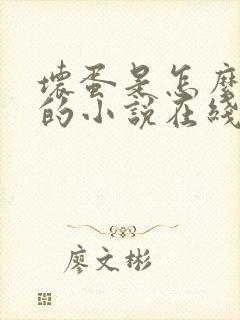 壞蛋是怎麼
的小說在綫
廖文彬